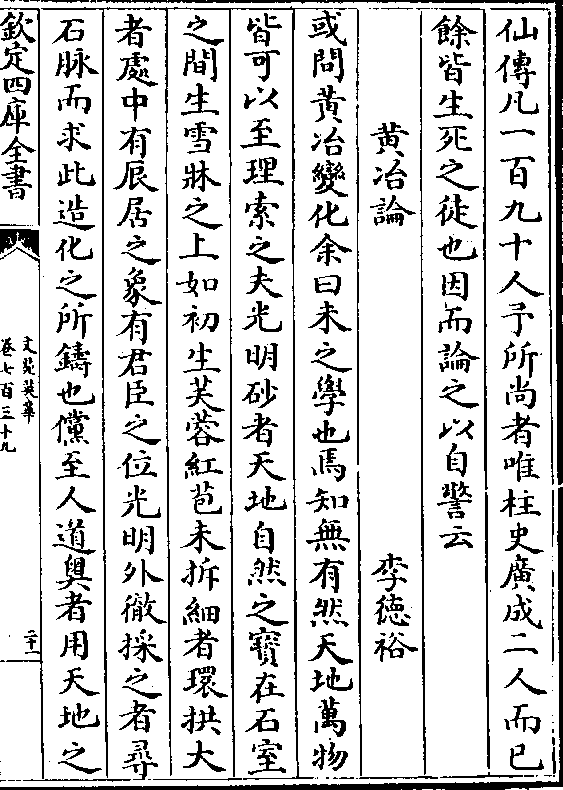 仙傳凡一百九十人予所尚者唯柱史廣成二人而已
餘皆生死之徒也因而論之以自警云
黄冶論 李德裕
或問黄冶變化余曰未之學也焉知無有然天地萬物
皆可以至理索之夫光明砂者天地自然之寳在石室
之間生雪牀之上如初生芙蓉紅苞未拆細者環拱大
者處中有辰居之象有君臣之位光明外徹採之者尋
石脉而求此造化之所鑄也儻至人道奥者用天地之
欽定四庫全書
文苑英華
卷七百三十九
二十一